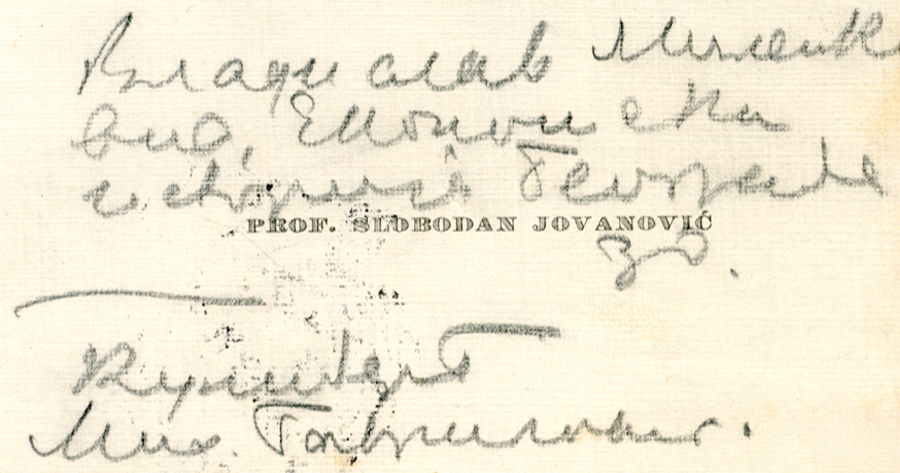 Владислав Миленко
вић, Економска
историја Београда
PROF. SLOBODAN JOVANOVIĆ
Мих. Гавриловић.